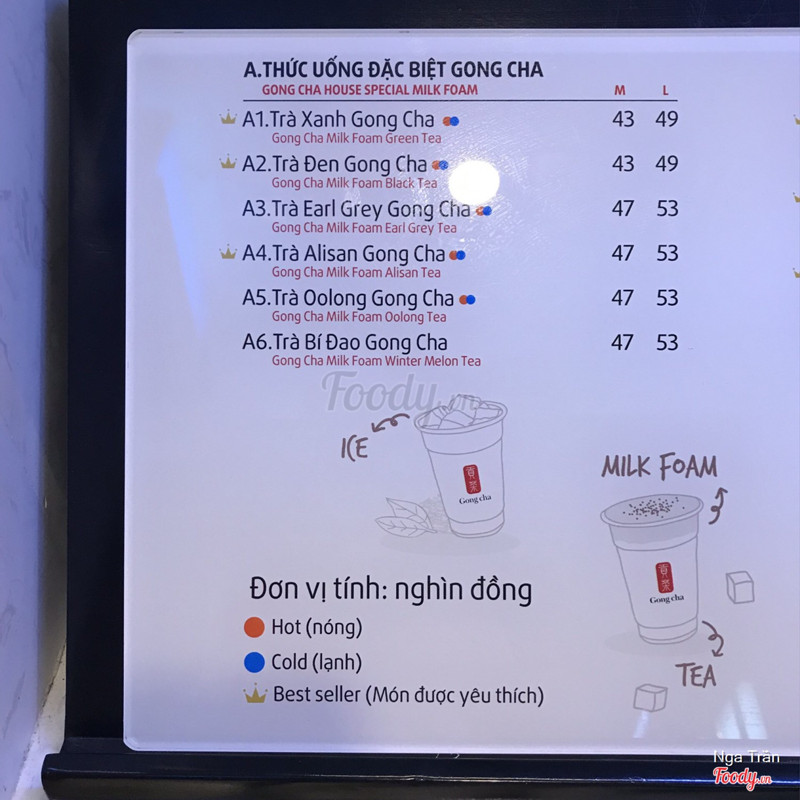 A.THỨC UỐNG ĐẶC BIỆT GONG CHA
GONG CHA HOUSE SPECIAL MILK FOAM M L
A1.Trà Xanh Gong Cha 43 49
Gong Cha Milk Foam Green Tea
A2.Trà Đen Gong Cha 43 49
Gong Cha Milk Foam Black Tea
A3.Trà Earl Grey Gong Cha 47 53
Gong Cha Milk Foam Earl Grey Tea
A4.Trà Alisan Gong Cha 47 53
Gong Cha Milk Foam Alisan Tea
A5.Trà Oolong Gong Cha 47 53
Gong Cha Milk Foam Oolong Tea
A6.Trà Bí Đao Gong Cha 47 53
Gong Cha Milk Foam Winter Melon Tea
Foody.vn
ICE
貢茶
Gong cha
MILK FOAM
貢茶
Gong cha
TEA
Đơn vị tính: nghìn đồng
Hot (nóng)
Cold (lạnh)
Best seller (Món được yêu thích)
Nga Trần
Foody.vn